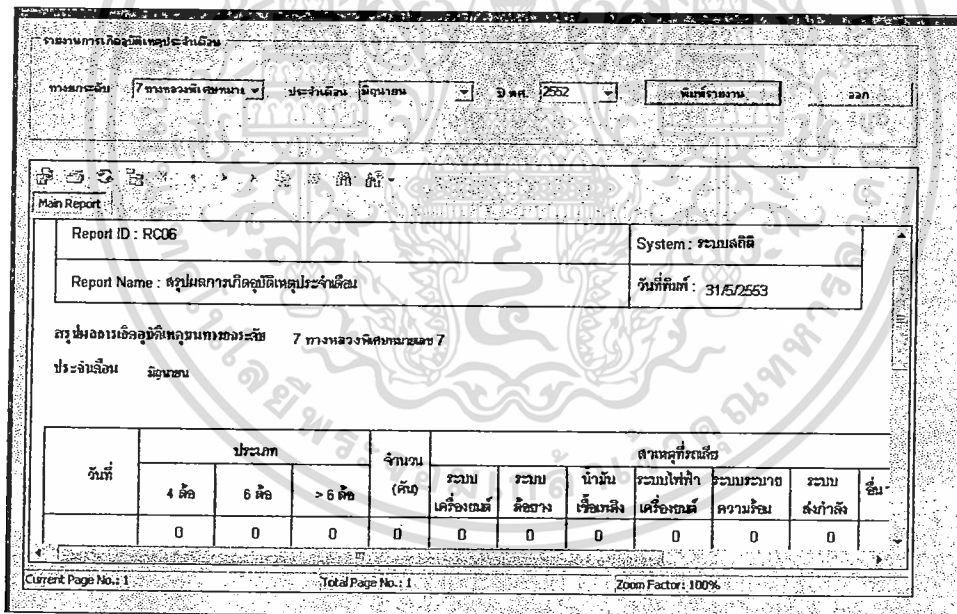 รายงานการเกิดอุบัติเหตุประจำเดือน
ทางยกระดับ 7 ทางหลวงพิเศษหมาย ประจำเดือน มิถุนายน ปี พศ. 2552 พิมพ์รายงาน ออก
Main Report
Report ID : RC06 System : ระบบสถิติ
Report Name : สรุปผลการเกิดอุบัติเหตุประจำเดือน วันที่พิมพ์ : 31/5/2553
สรุปผลการเกิดอุบัติเหตุบนทางยกระดับ 7 ทางหลวงพิเศษหมายเลข 7
ประจำเดือน มิถุนายน
วันที่ ประเภท จำนวน (คัน) สาเหตุที่รถเสีย
4 ล้อ 6 ล้อ > 6 ล้อ ระบบเครื่องยนต์ ระบบล้อยาง น้ำมันเชื้อเพลิง ระบบไฟฟ้าเครื่องยนต์ ระบบระบายความร้อน ระบบส่งกำลัง อื่น
0 0 0 0 0 0 0 0 0 0
Current Page No.: 1 Total Page No.: 1 Zoom Factor: 100%